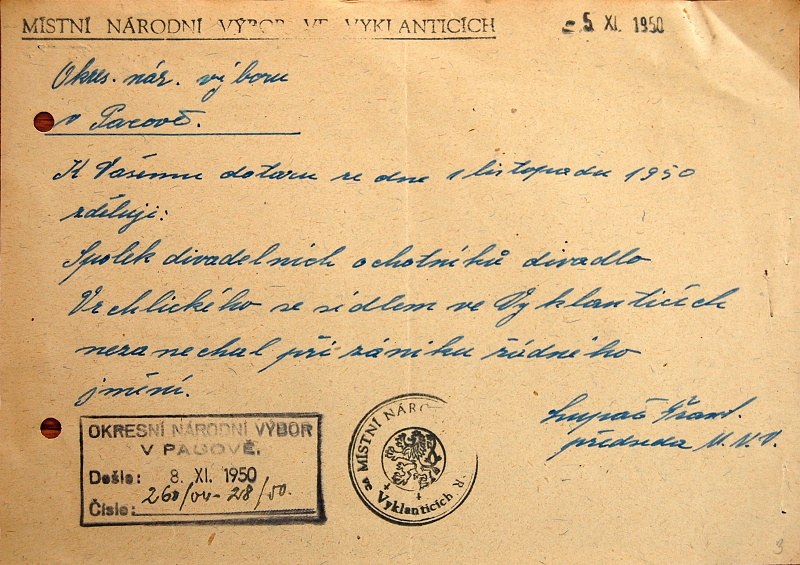 MÍSTNÍ NÁRODNÍ VÝBOR VE VYKLANTICÍCH
5 XI. 1950
Okres. nár. výboru
v Pacově.
K Vašemu dotazu ze dne 1 listopadu 1950
zděluji:
Spolek divadelních ochotníků divadlo
Vrchlického se sídlem ve Vyklanticích
nezanechal při zániku žádného
jmění.
Lupač Frant.
předseda M.N.V.
OKRESNÍ NÁRODNÍ VÝBOR
V PACOVĚ.
Došlo: 8. XI. 1950
Číslo: 260/04-28/50.
MÍSTNÍ NÁRO
ve Vyklanticích
3